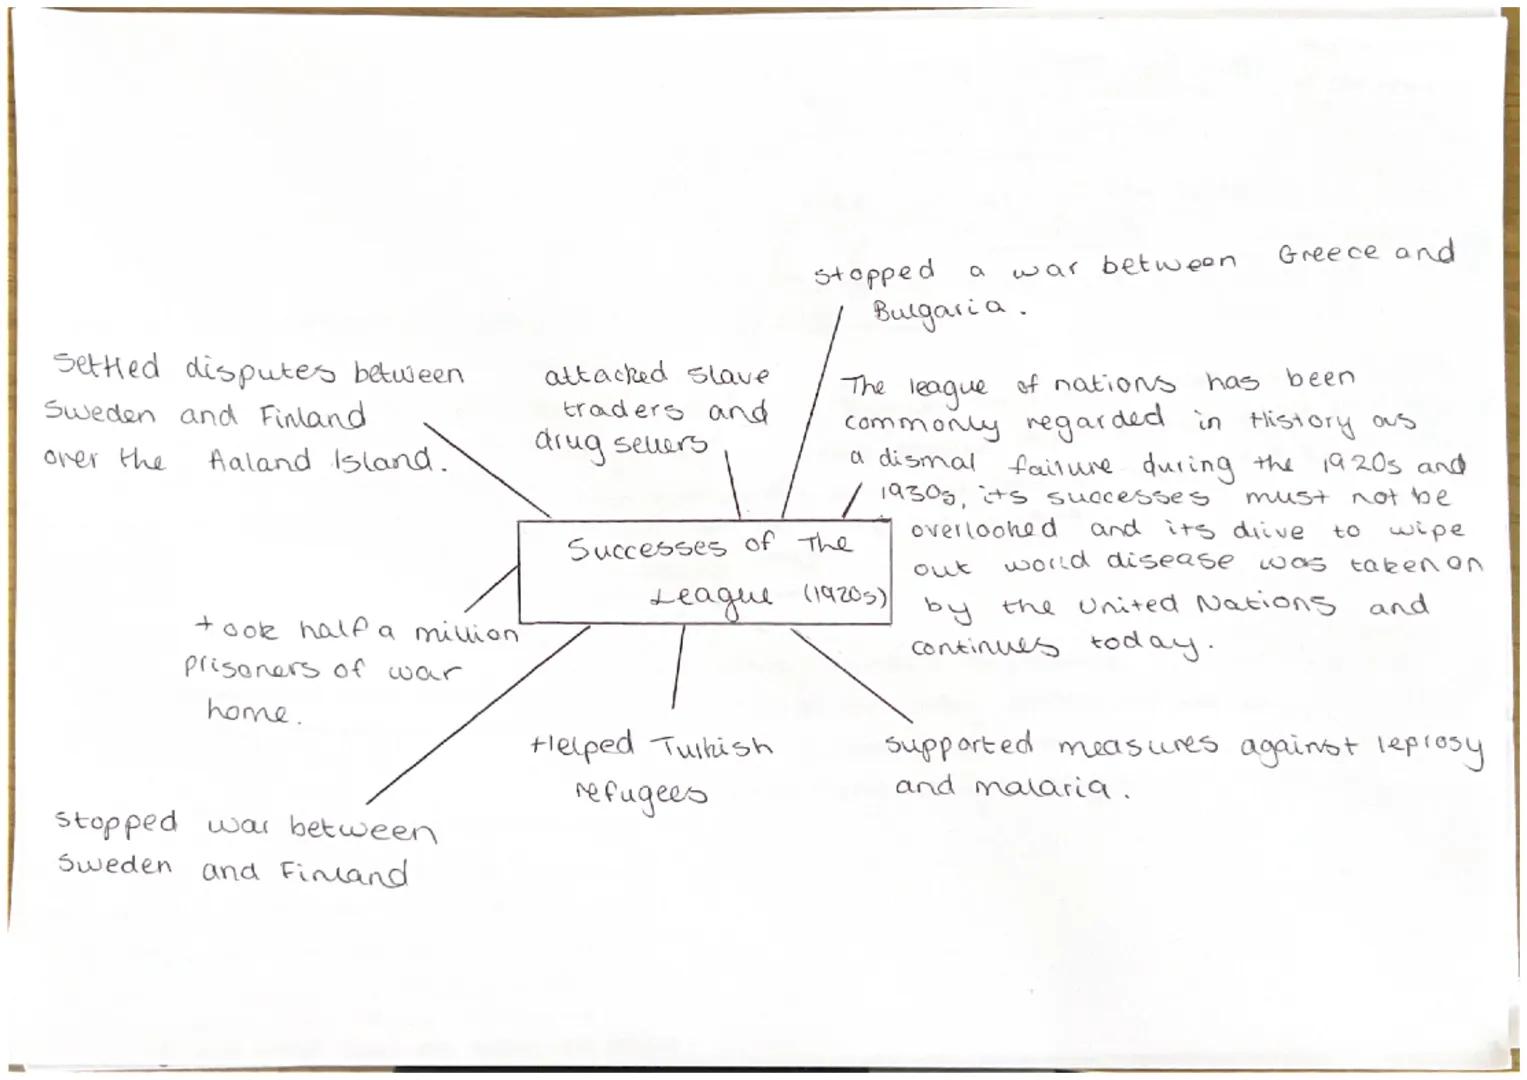 Successes of The
League (1920s)
Settled disputes between
Sweden and Finland
over the Aaland Island.
attacked slave
traders and
drug sellers
stopped a war between Greece and
Bulgaria.
The league of nations has been
commonly regarded in History as
a dismal failure during the 1920s and
1930s, its successes must not be
overlooked and its drive to wipe
out world disease was taken on
by the United Nations and
continues today.
took half a million
prisoners of war
home.
stopped war between
Sweden and Finland
Helped Turkish
refugees
supported measures against leprosy
and malaria.